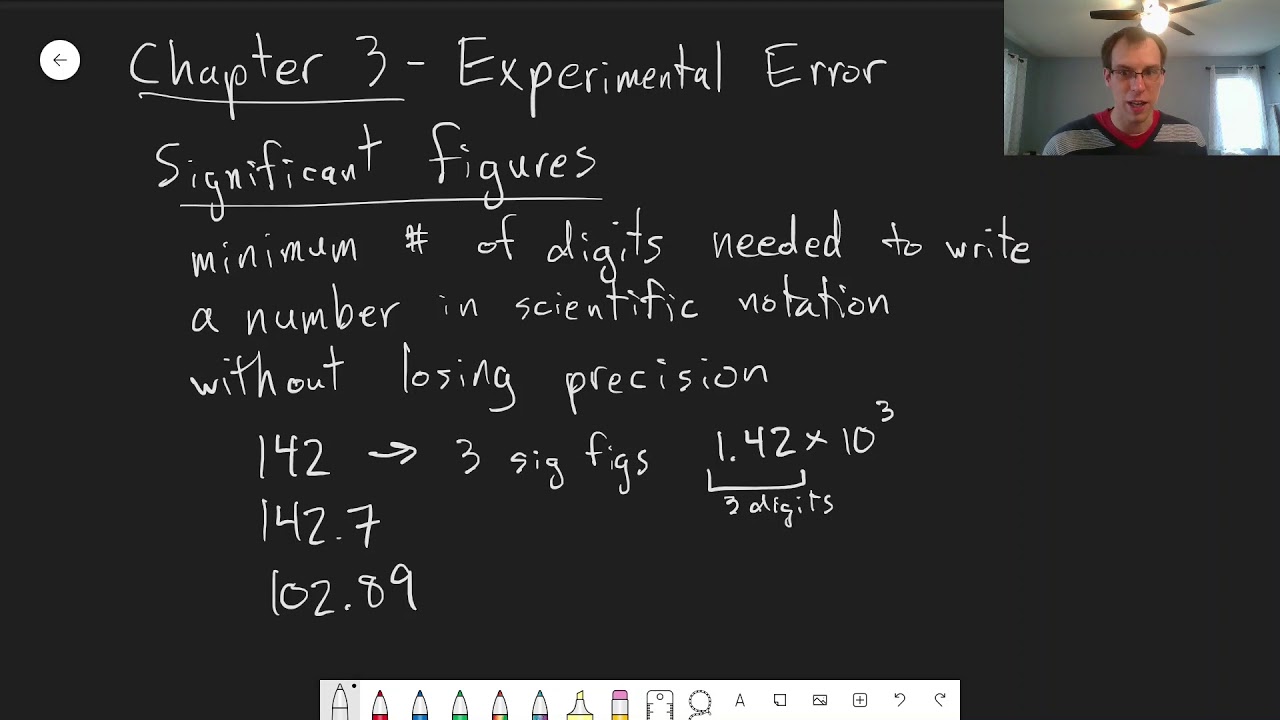 Chapter 3 - Experimental Error
Significant figures
minimum # of digits needed to write
a number in scientific notation
without losing precision
142 → 3 sig figs 1.42 × 10³
3 digits
142.7
102.89
A